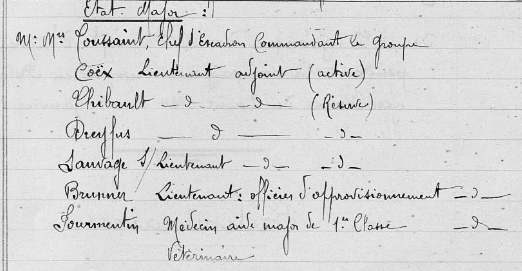 Etat-Major :
M. Mrs Toussaint, Chef d'Escadron Commandant le Groupe
Coëx Lieutenant adjoint (active)
Thibault — d — d — (Réserve)
Dreyfus — d — — d —
Sauvage S/Lieutenant — d — — d —
Brunner Lieutenant : officier d'approvisionnement — d —
Fourmentin Médecin aide major de 1re Classe — d —
Vétérinaire